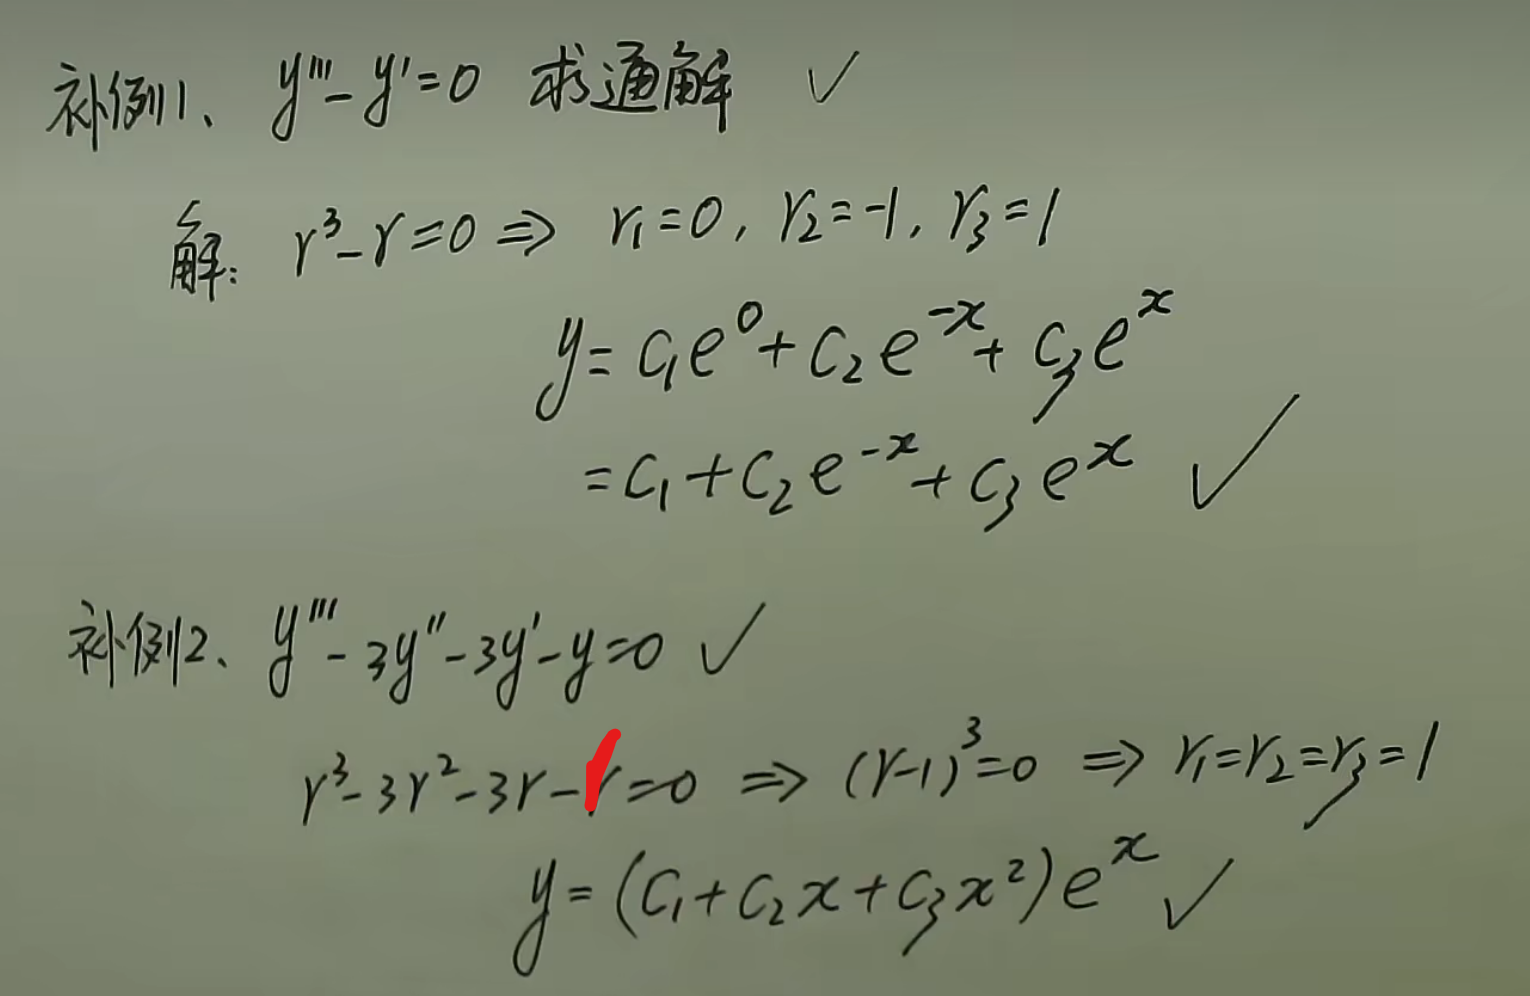 补例1、 y'''-y'=0 求通解 ✓
解: r³-r=0 ⇒ r₁=0, r₂=-1, r₃=1
y=C₁e⁰+C₂e⁻ˣ+C₃eˣ
=C₁+C₂e⁻ˣ+C₃eˣ ✓
补例2、 y'''-3y''-3y'-y=0 ✓
r³-3r²-3r-1=0 ⇒ (r-1)³=0 ⇒ r₁=r₂=r₃=1
y=(C₁+C₂x+C₃x²)eˣ ✓